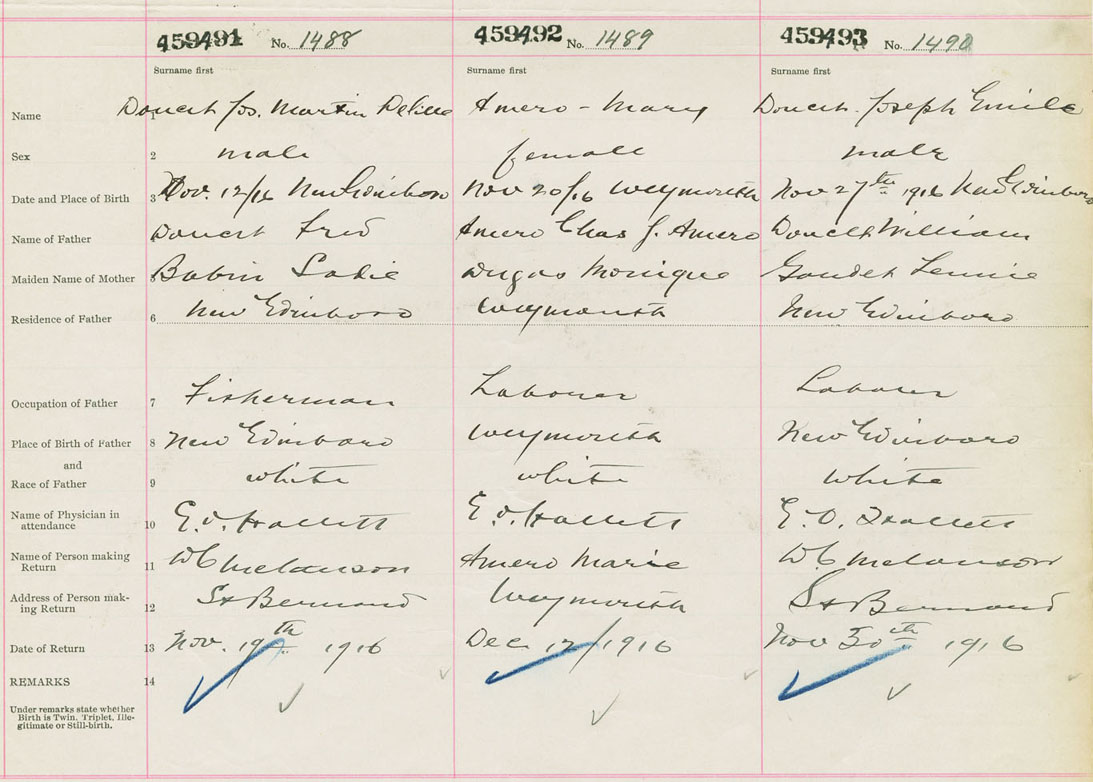 459491 No. 1488 459492 No. 1489 459493 No. 1490
Surname first Surname first Surname first
Name 1 Doucet Jos. Martin Amero - Mary Doucet Joseph Emile
Sex 2 male female male
Date and Place of Birth 3 Nov. 12/16 New Edinboro Nov 20/16 Weymouth Nov 27th 1916 New Edinboro
Name of Father 4 Doucet Fred Amero Chas J. Amero Doucet William
Maiden Name of Mother 5 Babin Sadie Dugas Monique Gaudet Lennie
Residence of Father 6 New Edinboro Weymouth New Edinboro
Occupation of Father 7 Fisherman Labourer Labourer
Place of Birth of Father 8 New Edinboro Weymouth New Edinboro
and
Race of Father 9 white white white
Name of Physician in
attendance 10 E. O. Hallett E. O. Hallett E. O. Hallett
Name of Person making
Return 11 W C Melanson Amero Marie W. C Melanson
Address of Person mak-
ing Return 12 St Bernard Weymouth St Bernard
Date of Return 13 Nov. 19th 1916 Dec 12/1916 Nov 30th 1916
REMARKS 14
Under remarks state whether
Birth is Twin, Triplet, Ille-
gitimate or Still-birth.